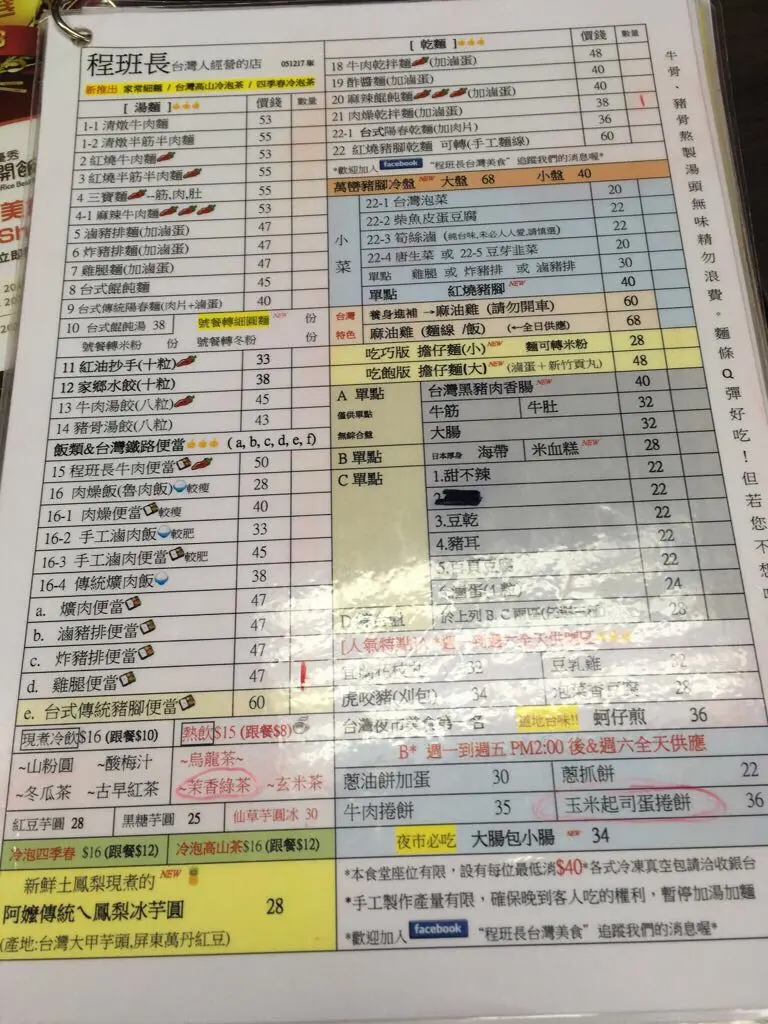 程班長台灣人經營的店 051217版
新推出 家常細麵 / 台灣高山冷泡茶 / 四季春冷泡茶
[ 湯麵 ] 價錢 數量
1-1 清燉牛肉麵 53
1-2 清燉半筋半肉麵 55
2 紅燒牛肉麵 53
3 紅燒半筋半肉麵 55
4 三寶麵--筋,肉,肚 55
4-1 麻辣牛肉麵 53
5 滷豬排麵(加滷蛋) 47
6 炸豬排麵(加滷蛋) 47
7 雞腿麵(加滷蛋) 47
8 台式餛飩麵 45
9 台式傳統陽春麵(肉片+滷蛋) 40
10 台式餛飩湯 38 號餐轉細圓麵 NEW 份
號餐轉米粉 份 號餐轉冬粉 份
11 紅油抄手(十粒) 33
12 家鄉水餃(十粒) 38
13 牛肉湯餃(八粒) 45
14 豬骨湯餃(八粒) 43
飯類&台灣鐵路便當 ( a, b, c, d, e, f)
15 程班長牛肉便當 50
16 肉燥飯(魯肉飯)較瘦 28
16-1 肉燥便當較瘦 40
16-2 手工滷肉飯較肥 33
16-3 手工滷肉便當較肥 45
16-4 傳統爌肉飯 38
a. 爌肉便當 47
b. 滷豬排便當 47
c. 炸豬排便當 47
d. 雞腿便當 47
e. 台式傳統豬腳便當 60
現煮冷飲$16 (跟餐$10) 熱飲$15 (跟餐$8)
~山粉圓 ~酸梅汁 ~烏龍茶~
~冬瓜茶 ~古早紅茶 ~茉香綠茶 ~玄米茶
紅豆芋圓 28 黑糖芋圓 25 仙草芋圓冰 30
冷泡四季春 $16 (跟餐$12) 冷泡高山茶$16 (跟餐$12)
新鮮土鳳梨現煮的 NEW
阿嬤傳統ㄟ鳳梨冰芋圓 28
(產地:台灣大甲芋頭,屏東萬丹紅豆)
[ 乾麵 ] 價錢 數量
18 牛肉乾拌麵(加滷蛋) 48
19 酢醬麵(加滷蛋) 40
20 麻辣餛飩麵(加滷蛋) 40
21 肉燥乾拌麵(加滷蛋) 38
22-1 台式陽春乾麵(加肉片) 36
22 紅燒豬腳乾麵 可轉(手工麵線) 60
*歡迎加入 facebook “程班長台灣美食” 追蹤我們的消息喔*
萬巒豬腳冷盤 NEW 大盤 68 小盤 40
小菜
22-1 台灣泡菜 20
22-2 柴魚皮蛋豆腐 22
22-3 筍絲滷 (純台味,未必人人愛,請慎選) 22
22-4 唐生菜 或 22-5 豆芽韭菜 20
單點 雞腿 或 炸豬排 或 滷豬排 30
單點 紅燒豬腳 NEW 40
台灣 養身進補→麻油雞 (請勿開車) 60
特色 麻油雞 (麵線 /飯) (←全日供應) 68
吃巧版 擔仔麵(小) NEW 麵可轉米粉 28
吃飽版 擔仔麵(大) NEW (滷蛋+新竹貢丸) 48
A 單點 台灣黑豬肉香腸 NEW 40
僅供單點 牛筋 牛肚 32
無綜合盤 大腸 32
B 單點 日本厚身 海帶 米血糕 NEW 28
C 單點 1.甜不辣 22
22
3.豆乾 22
4.豬耳 22
22
6.滷蛋(1粒) 24
28
虎咬豬(刈包) 34 28
道地台味!! 蚵仔煎 36
B* 週一到週五 PM2:00 後&週六全天供應
蔥油餅加蛋 30 蔥抓餅 22
牛肉捲餅 35 玉米起司蛋捲餅 36
夜市必吃 大腸包小腸 NEW 34
*本食堂座位有限，設有每位最低消$40*各式冷凍真空包請洽收銀台
*手工製作產量有限，確保晚到客人吃的權利，暫停加湯加麵
*歡迎加入 facebook “程班長台灣美食” 追蹤我們的消息喔*
牛骨、豬骨熬製湯頭無味精勿浪費。麵條Q彈好吃！但若您不想